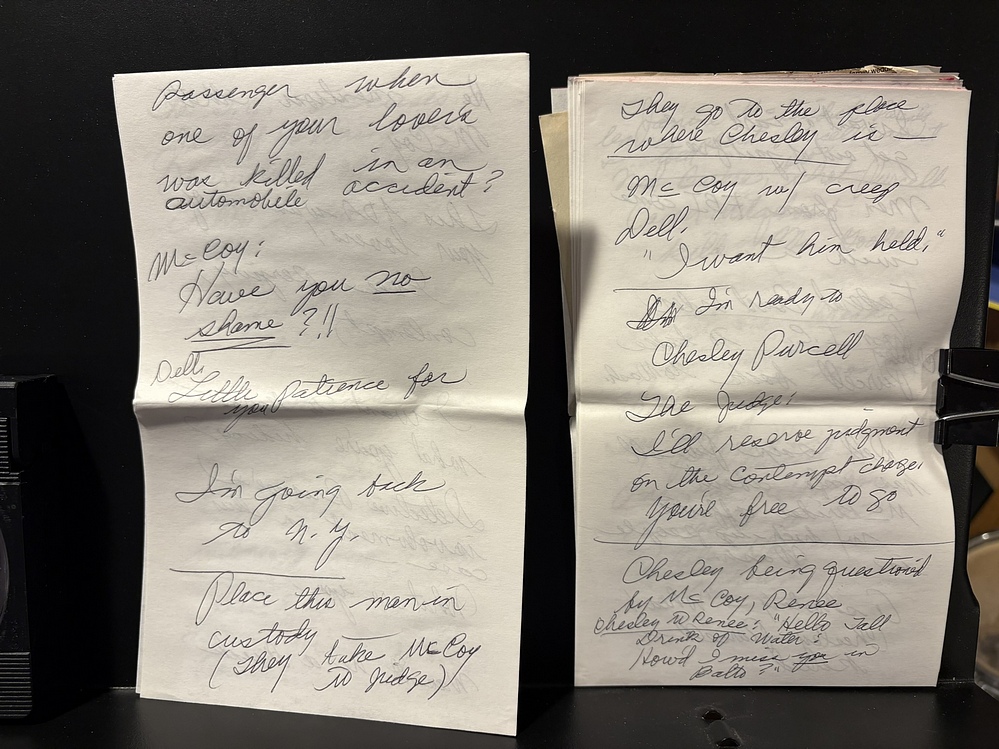 Passenger when
one of your lovers
was killed in an
automobile accident?
McCoy:
Have you no
shame?!!
Dell:
Little Patience for
you
I'm going back
to N.Y.
Place this man in
custody
(They take McCoy
to Judge)
They go to the place
where Chesley is —
McCoy w/ creep
Dell.
"I want him held."
I'm ready to
Chesley Purcell
The Judge:
I'll reserve judgment
on the contempt charge.
You're free to go
Chesley being questioned
by McCoy, Renee
Chesley to Renee: "Hello Tall
Drink of Water:
How'd I miss you in
Balto?"